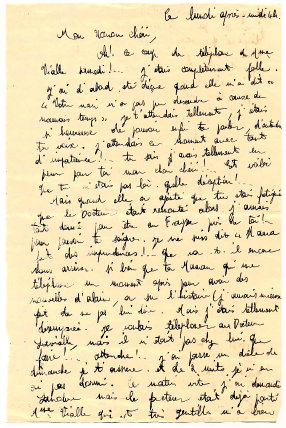 Ce lundi après-midi 4h.
Mon Nanou chéri,
Oh! ce coup de téléphone de Mme
Vialle samedi!.. J'étais complètement folle.
J'ai d'abord été déçue quand elle m'a dit
"Votre mari n'a pas pu descendre à cause du
mauvais temps". Je t'attendais tellement, j'étais
si heureuse de pouvoir enfin te parler, d'entendre
ta voix. J'attendais ce moment avec tant
d'impatience!.. tu sais j'avais tellement eu
peur pour toi mon chou chéri!... Et voilà
que tu n'étais pas là, quelle déception!..
Mais quand elle a ajouté que tu étais fatigué
que le Docteur était remonté alors j'aurais
tout donné pour être en près de toi
pour pouvoir te soigner. Je me suis dit
fait des imprudences!.. Que va-t-il encore
nous arriver. si bien que ta Nanou qui me
téléphone un moment après pour avoir des
nouvelles d'Alain, a su l'histoire (j'aurais mieux
fait de ne pas lui dire. Mais j'étais tellement
désemparée. Je voulais téléphoner au Docteur
mais il n'était pas chez lui, que
faire!... attendre!.. J'ai passé un drôle de
dimanche je t'assure. et de 2 nuits, je n'en
ai pas dormi. Ce matin vite j'ai demandé
mais le facteur était déjà parti
Mme Vialle qui est très gentille m'a bien